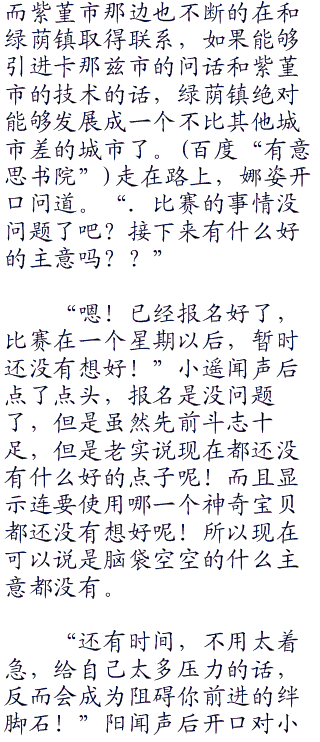 而紫堇市那边也不断的在和
绿荫镇取得联系，如果能够
引进卡那兹市的问话和紫堇
市的技术的话，绿荫镇绝对
能够发展成一个不比其他城
市差的城市了。(百度“有意
思书院”)走在路上，娜姿开
口问道。“．比赛的事情没
问题了吧？接下来有什么好
的主意吗？？”
“嗯！已经报名好了，
比赛在一个星期以后，暂时
还没有想好！”小遥闻声后
点了点头，报名是没问题
了，但是虽然先前斗志十
足，但是老实说现在都还没
有什么好的点子呢！而且显
示连要使用哪一个神奇宝贝
都还没有想好呢！所以现在
可以说是脑袋空空的什么主
意都没有。
“还有时间，不用太着
急，给自己太多压力的话，
反而会成为阻碍你前进的绊
脚石！”阳闻声后开口对小